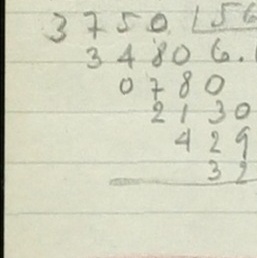 3750 56
34806.
0780
2130
429
32